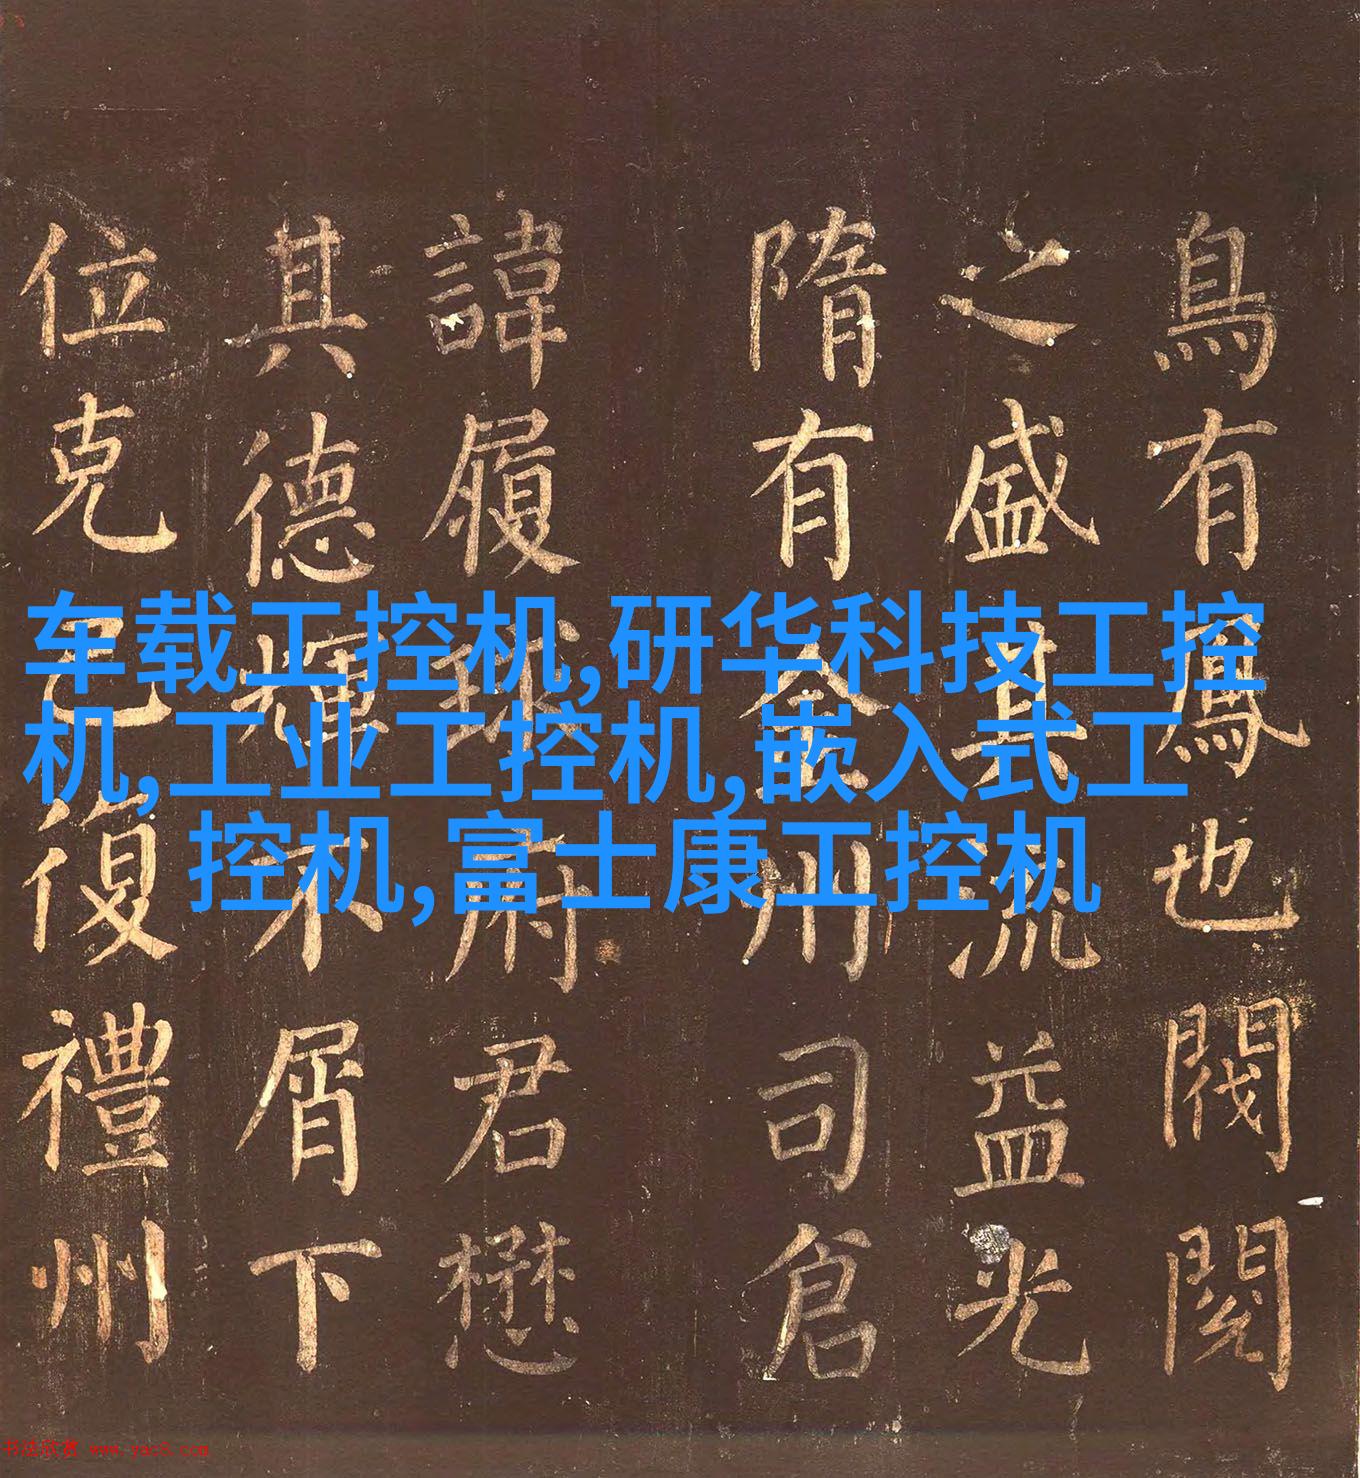 鳥有鳳也閥閱
之盛其流益光
隋有金州司倉
諱履肅君懋
其德輝不屑下
位克己復禮州
车载工控机,研华科技工控
机,工业工控机,嵌入式工
控机,富士康工控机
书法欣赏 www.yac8.com